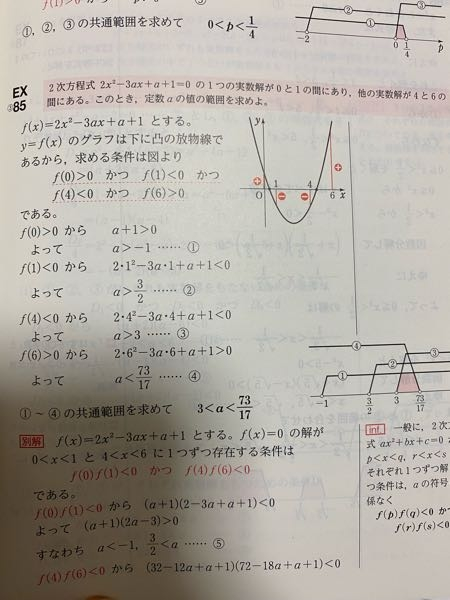 f(1)>0 から
①, ②, ③ の共通範囲を求めて 0<p<1/4
② ③
①
-2 0 1/4 p
EX
③85
2次方程式 2x²-3ax+a+1=0 の1つの実数解が0と1の間にあり, 他の実数解が4と6の
間にある。このとき, 定数aの値の範囲を求めよ。
f(x)=2x²-3ax+a+1 とする。
y=f(x) のグラフは下に凸の放物線で
あるから, 求める条件は図より
f(0)>0 かつ f(1)<0 かつ
f(4)<0 かつ f(6)>0
である。
y
O 1 4 6 x
f(0)>0 から a+1>0
よって a>-1 …… ①
f(1)<0 から 2・1²-3a・1+a+1<0
よって a>3/2 …… ②
f(4)<0 から 2・4²-3a・4+a+1<0
よって a>3 …… ③
f(6)>0 から 2・6²-3a・6+a+1>0
よって a<73/17 …… ④
①~④ の共通範囲を求めて 3<a<73/17
④
③
②
①
-1 3/2 3 73/17
別解 f(x)=2x²-3ax+a+1 とする。f(x)=0 の解が
0<x<1 と 4<x<6 に1つずつ存在する条件は
f(0)f(1)<0 かつ f(4)f(6)<0
である。
f(0)f(1)<0 から (a+1)(2-3a+a+1)<0
よって (a+1)(2a-3)>0
すなわち a<-1, 3/2<a …… ⑤
f(4)f(6)<0 から (32-12a+a+1)(72-18a+a+1)<0
inf. 一般に, 2次
式 ax²+bx+c=0
p<x<q, r<x<s
それぞれ1つずつ解
つ条件は, aの符号
係なく
f(p)f(q)<0 か
f(r)f(s)<0